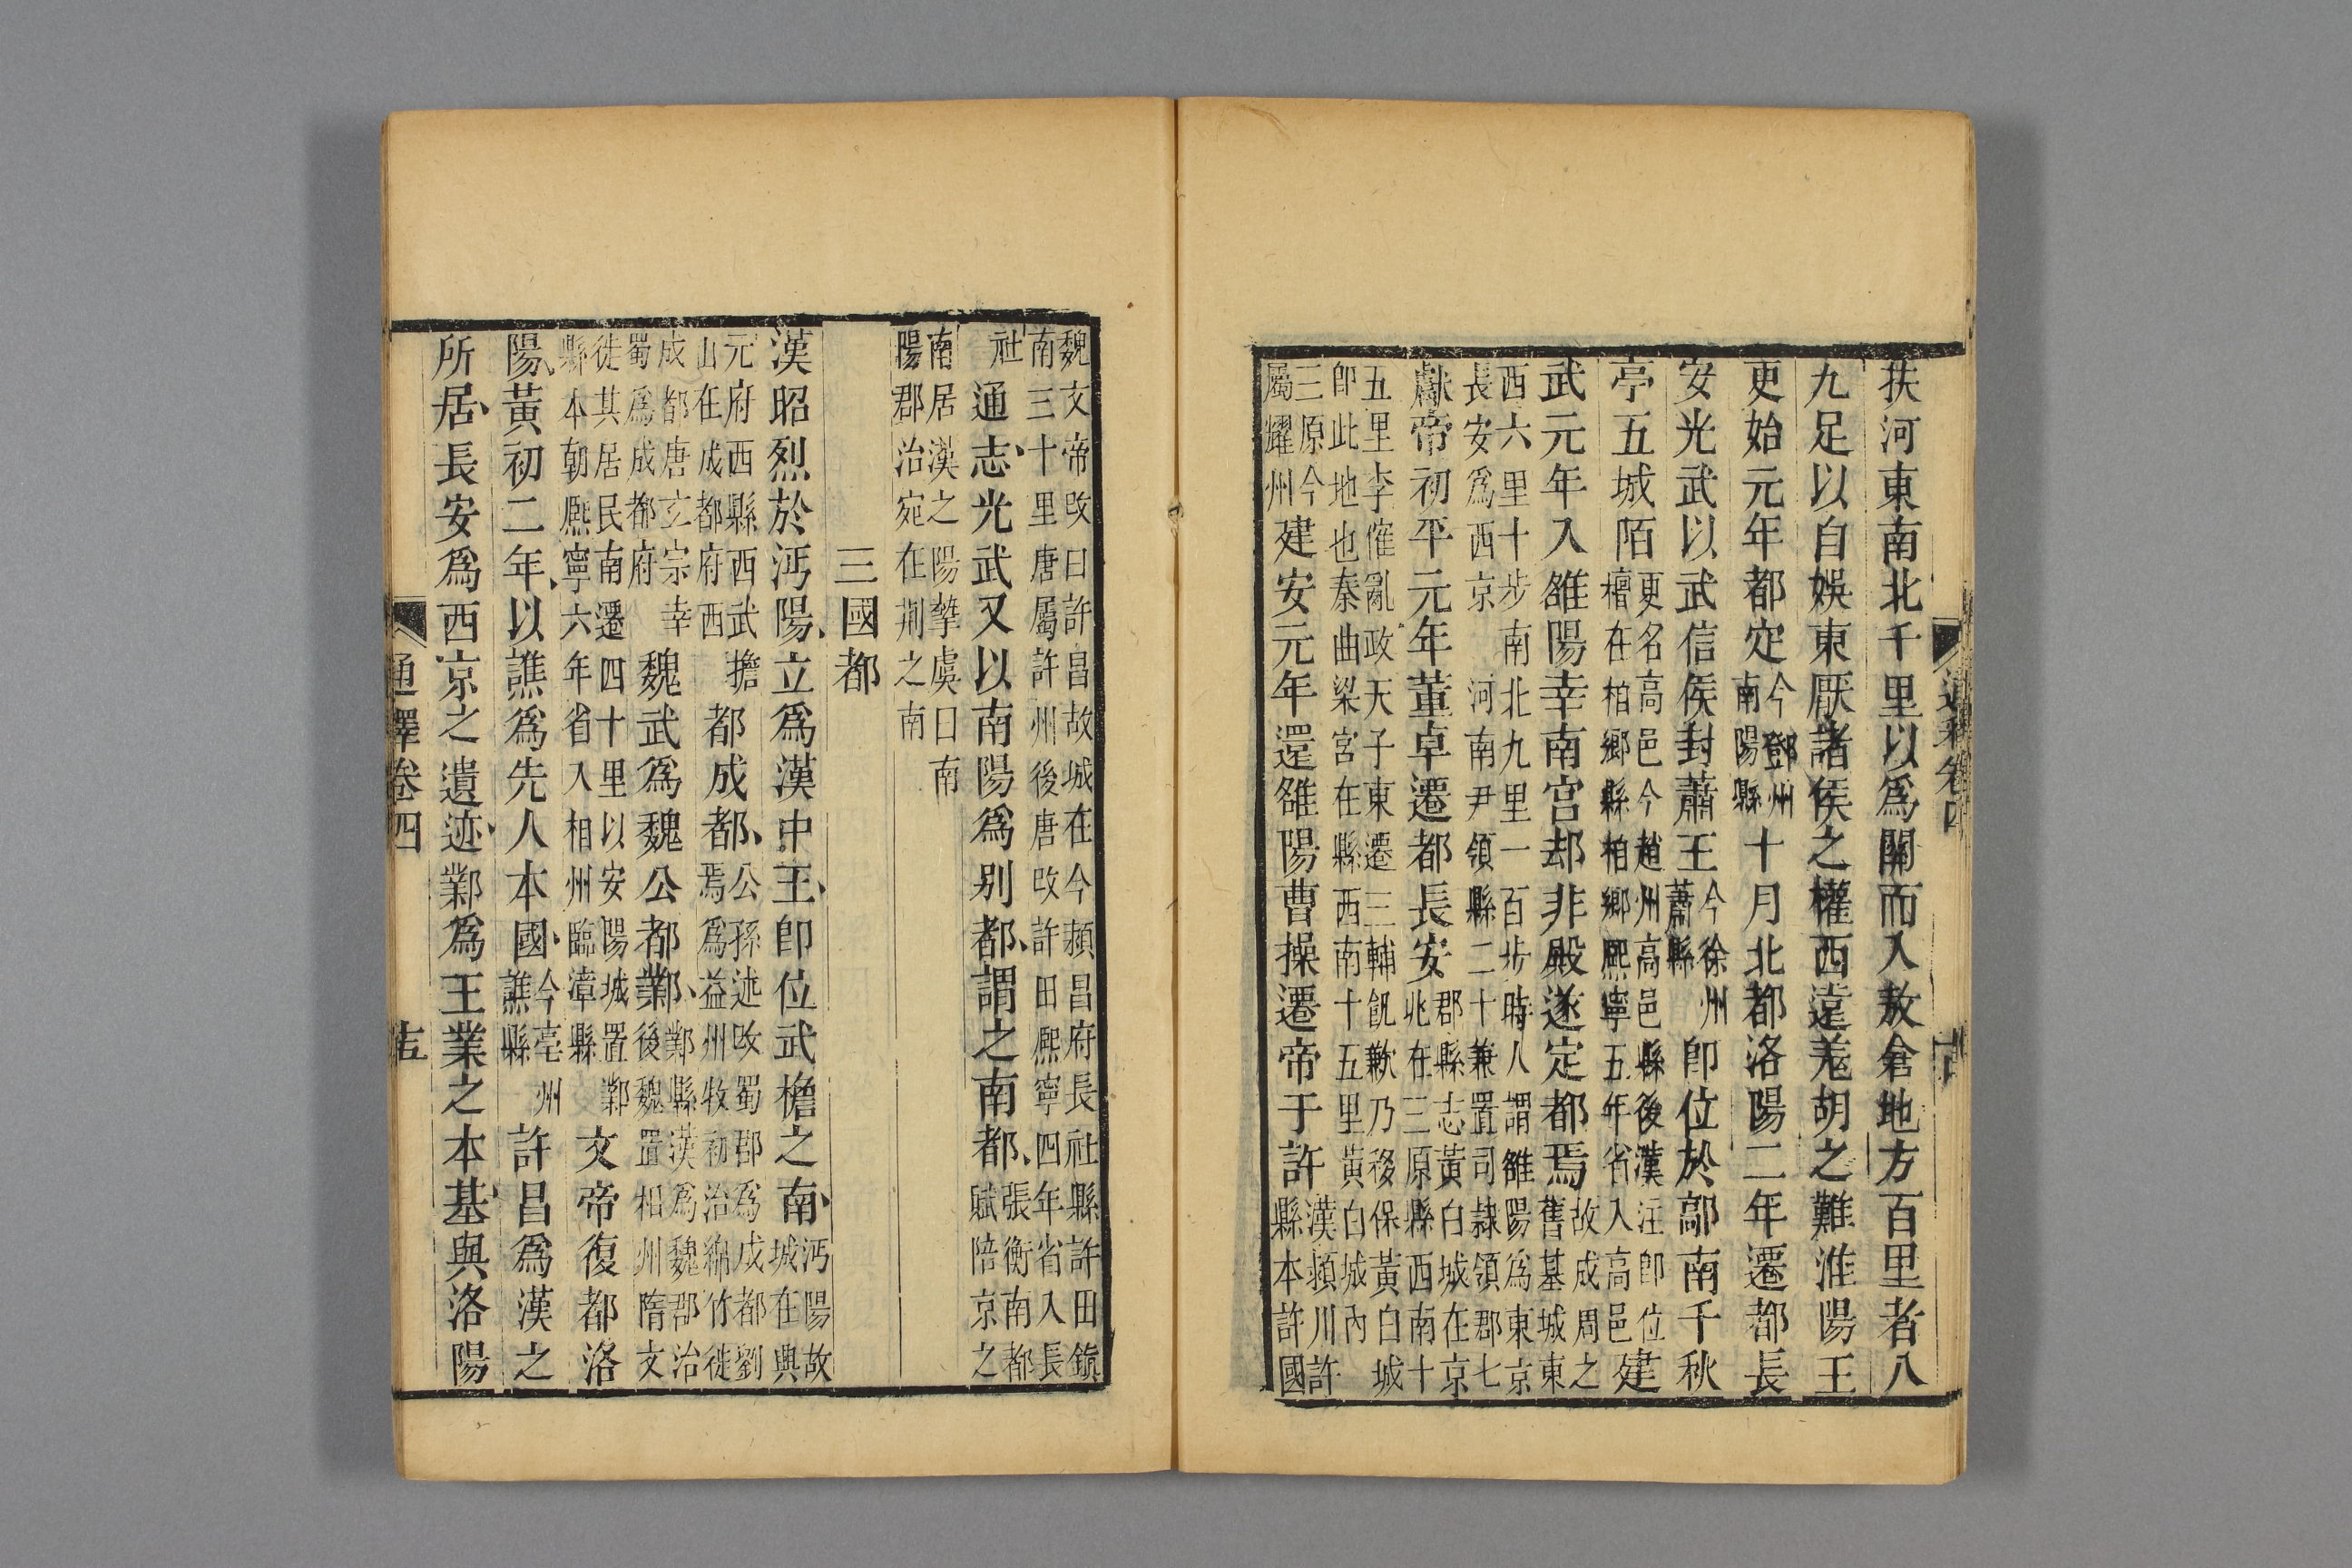 扶河東南北千里以為關而入敖倉地方百里者八
九足以自娛東厭諸侯之權西遠羗胡之難淮陽王
更始元年都定今鄧州南陽縣十月北都洛陽二年遷都長
安光武以武信侯封蕭王今徐州蕭縣即位於鄗南千秋
亭五城陌更名高邑今趙州高邑縣後漢注即位壇在柏鄉縣柏鄉熙寧五年省入高邑建
武元年入雒陽幸南宫却非殿遂定都焉故成周之舊基城東
西六里十步南北九里一百步時人謂雒陽為東京長安為西京河南尹領縣二十兼置司隷領郡七
獻帝初平元年董卓遷都長安郡縣志黃白城在京兆在三原縣西南十
五里李傕亂政天子東遷三輔飢歉乃移保黃白城即此地也秦曲梁宮在縣西南十五里黃白城內
三原今屬耀州建安元年還雒陽曹操遷帝于許漢潁川許縣本許國
魏文帝改曰許昌故城在今潁昌府長社縣許田鎮南三十里唐屬許州後唐改許田熙寧四年省入長
社通志光武又以南陽為别都謂之南都張衡南都賦陪京之
南居漢之陽摯虞曰南陽郡治宛在荆之南
三國都
漢昭烈於沔陽立為漢中王即位武檐之南沔陽故城在興
元府西縣西武擔山在成都府西都成都公孫述改蜀郡為成都劉焉為益州牧初治綿竹徙
成都唐玄宗幸蜀為成都府魏武為魏公都鄴鄴縣漢為魏郡治後魏置相州隋文
徙其居民南遷四十里以安陽城置鄴縣本朝熈寧六年省入相州臨漳縣文帝復都洛
陽黃初二年以譙為先人本國今亳州譙縣許昌為漢之
所居長安為西京之遺迹鄴為王業之本基與洛陽
通釋卷四